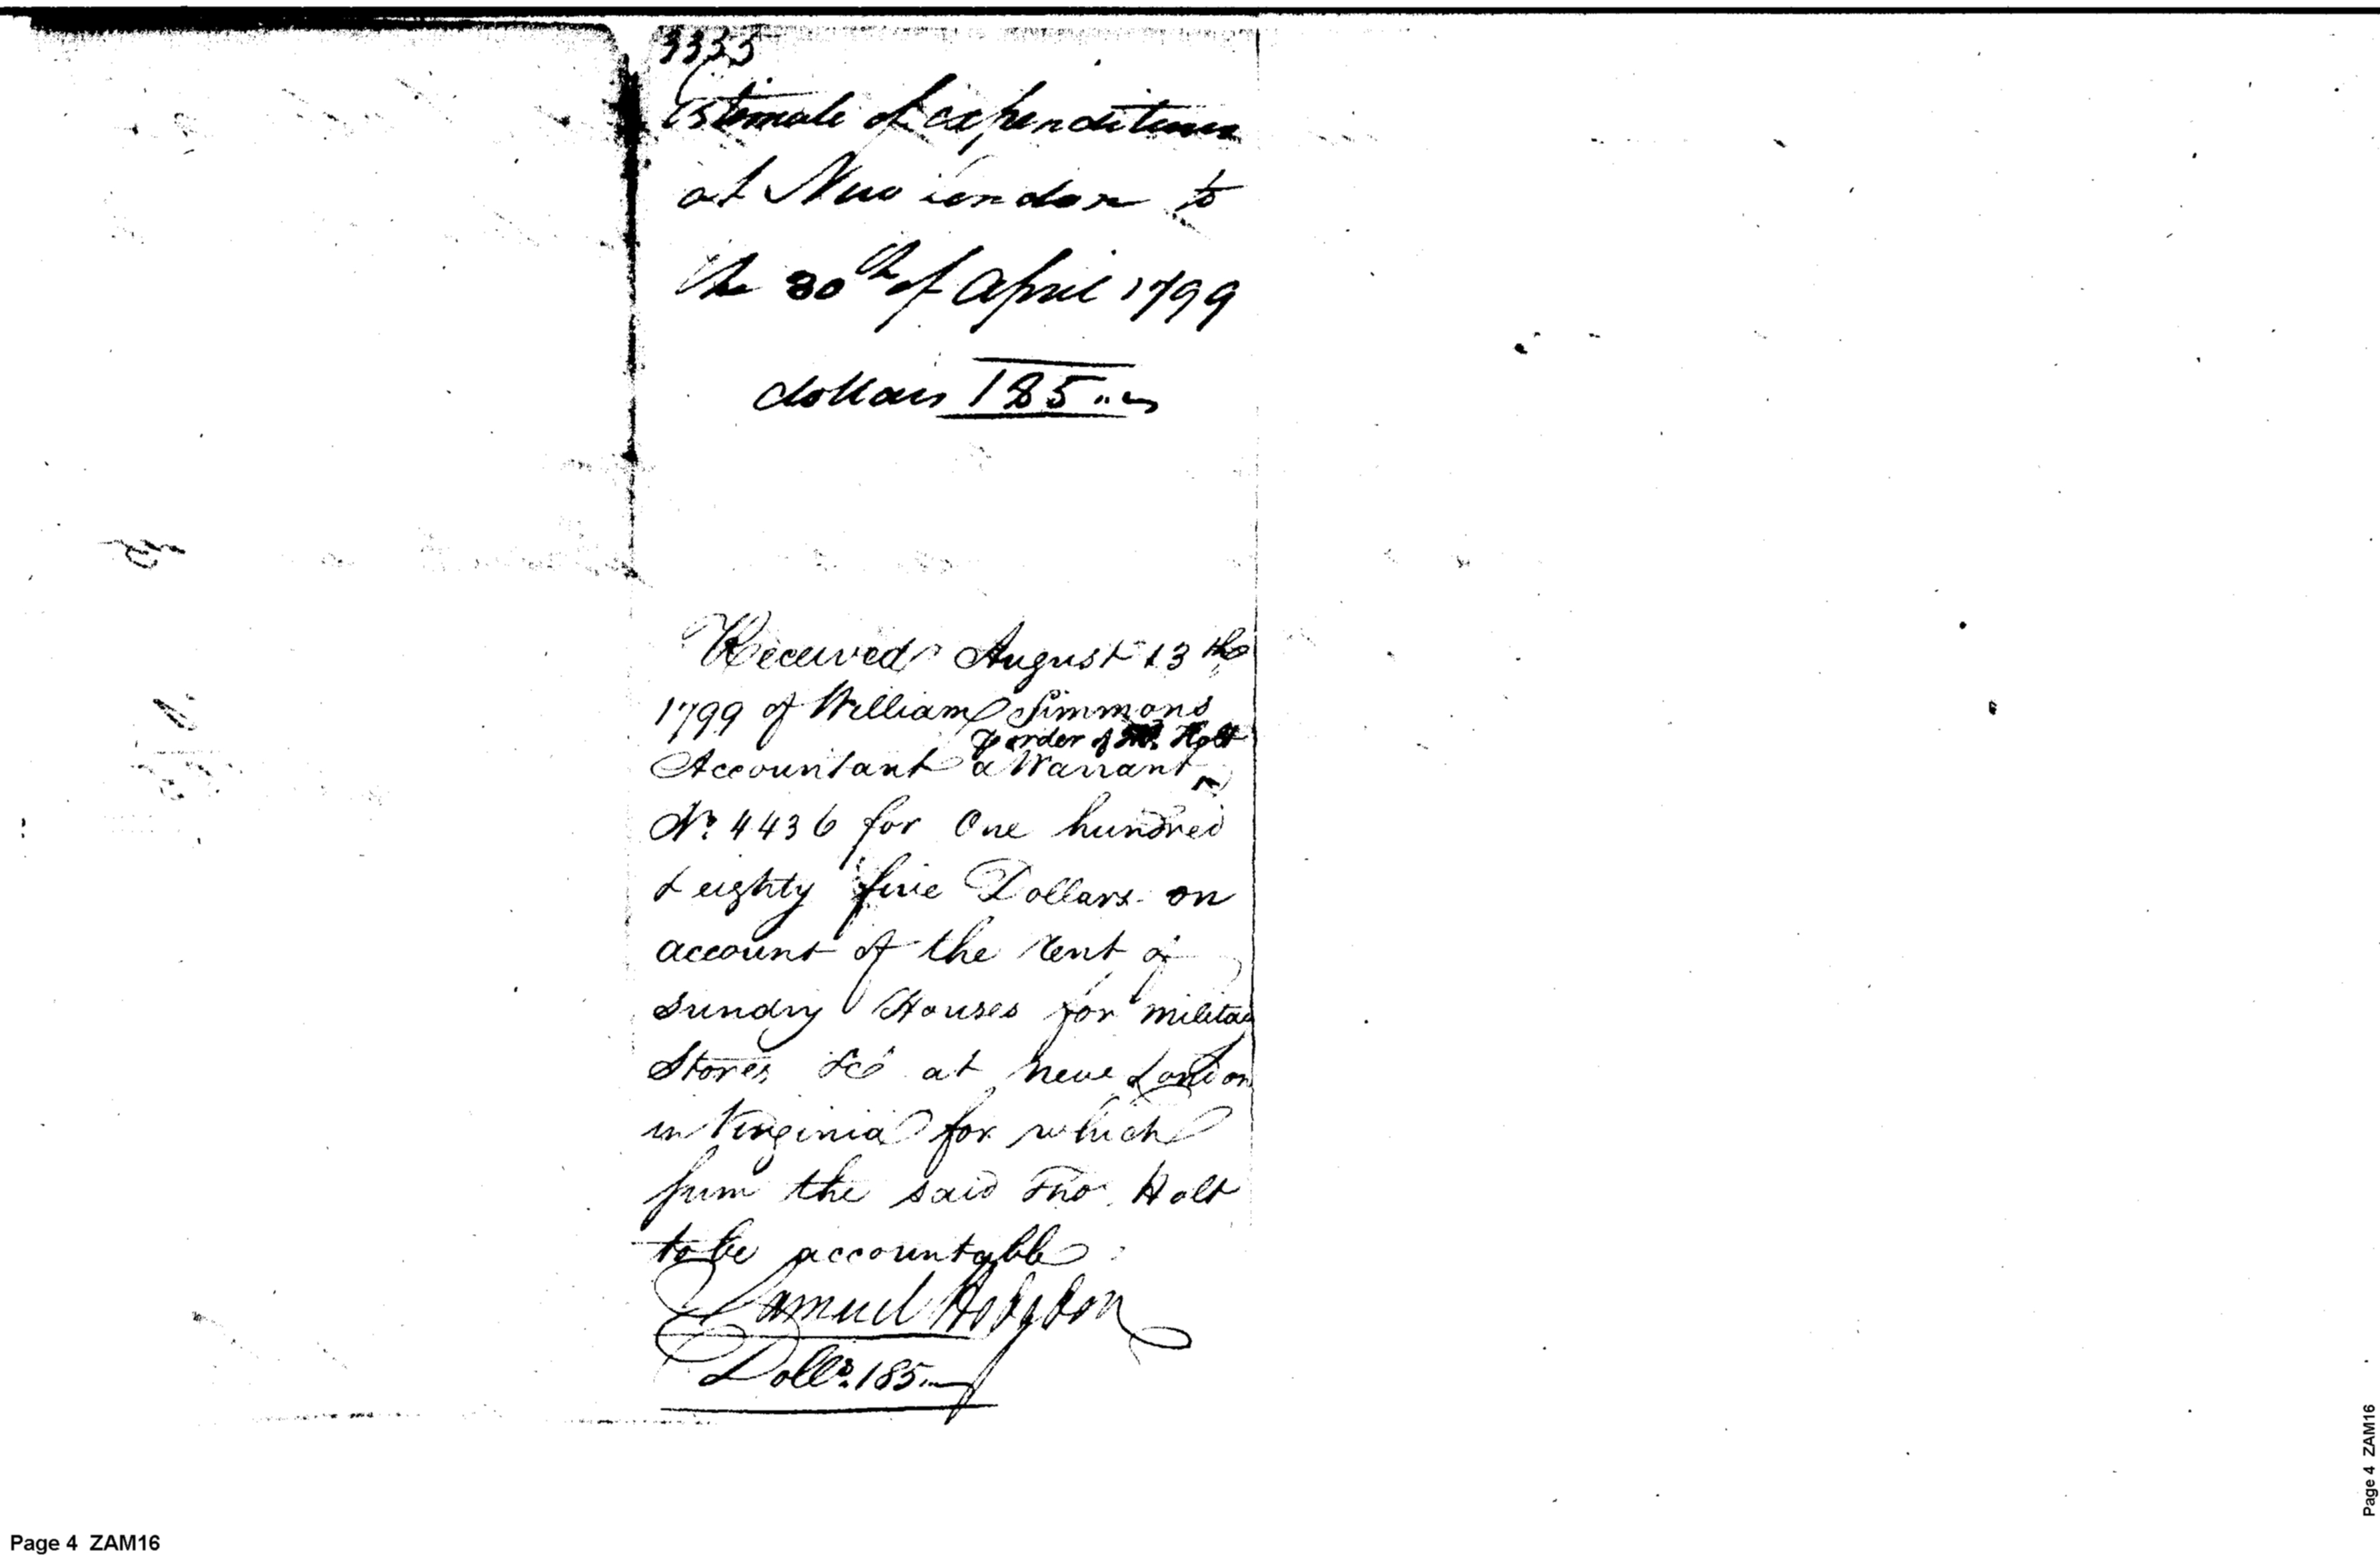 3333
Estimate of expenditures
at New London to
the 30th of April 1799
dollars 185
Received August 13th
1799 of William Simmons
p order of Holt
Accountant a Warrant ^
No. 4436 for One hundred
& eighty five Dollars on
account of the rent of
Sundry Houses for military
Stores &c at New London
in Virginia for which
sum the said Tho. Holt
to be accountable
Samuel Hodgdon
Dolls. 185
Page 4 ZAM16
Page 4 ZAM16